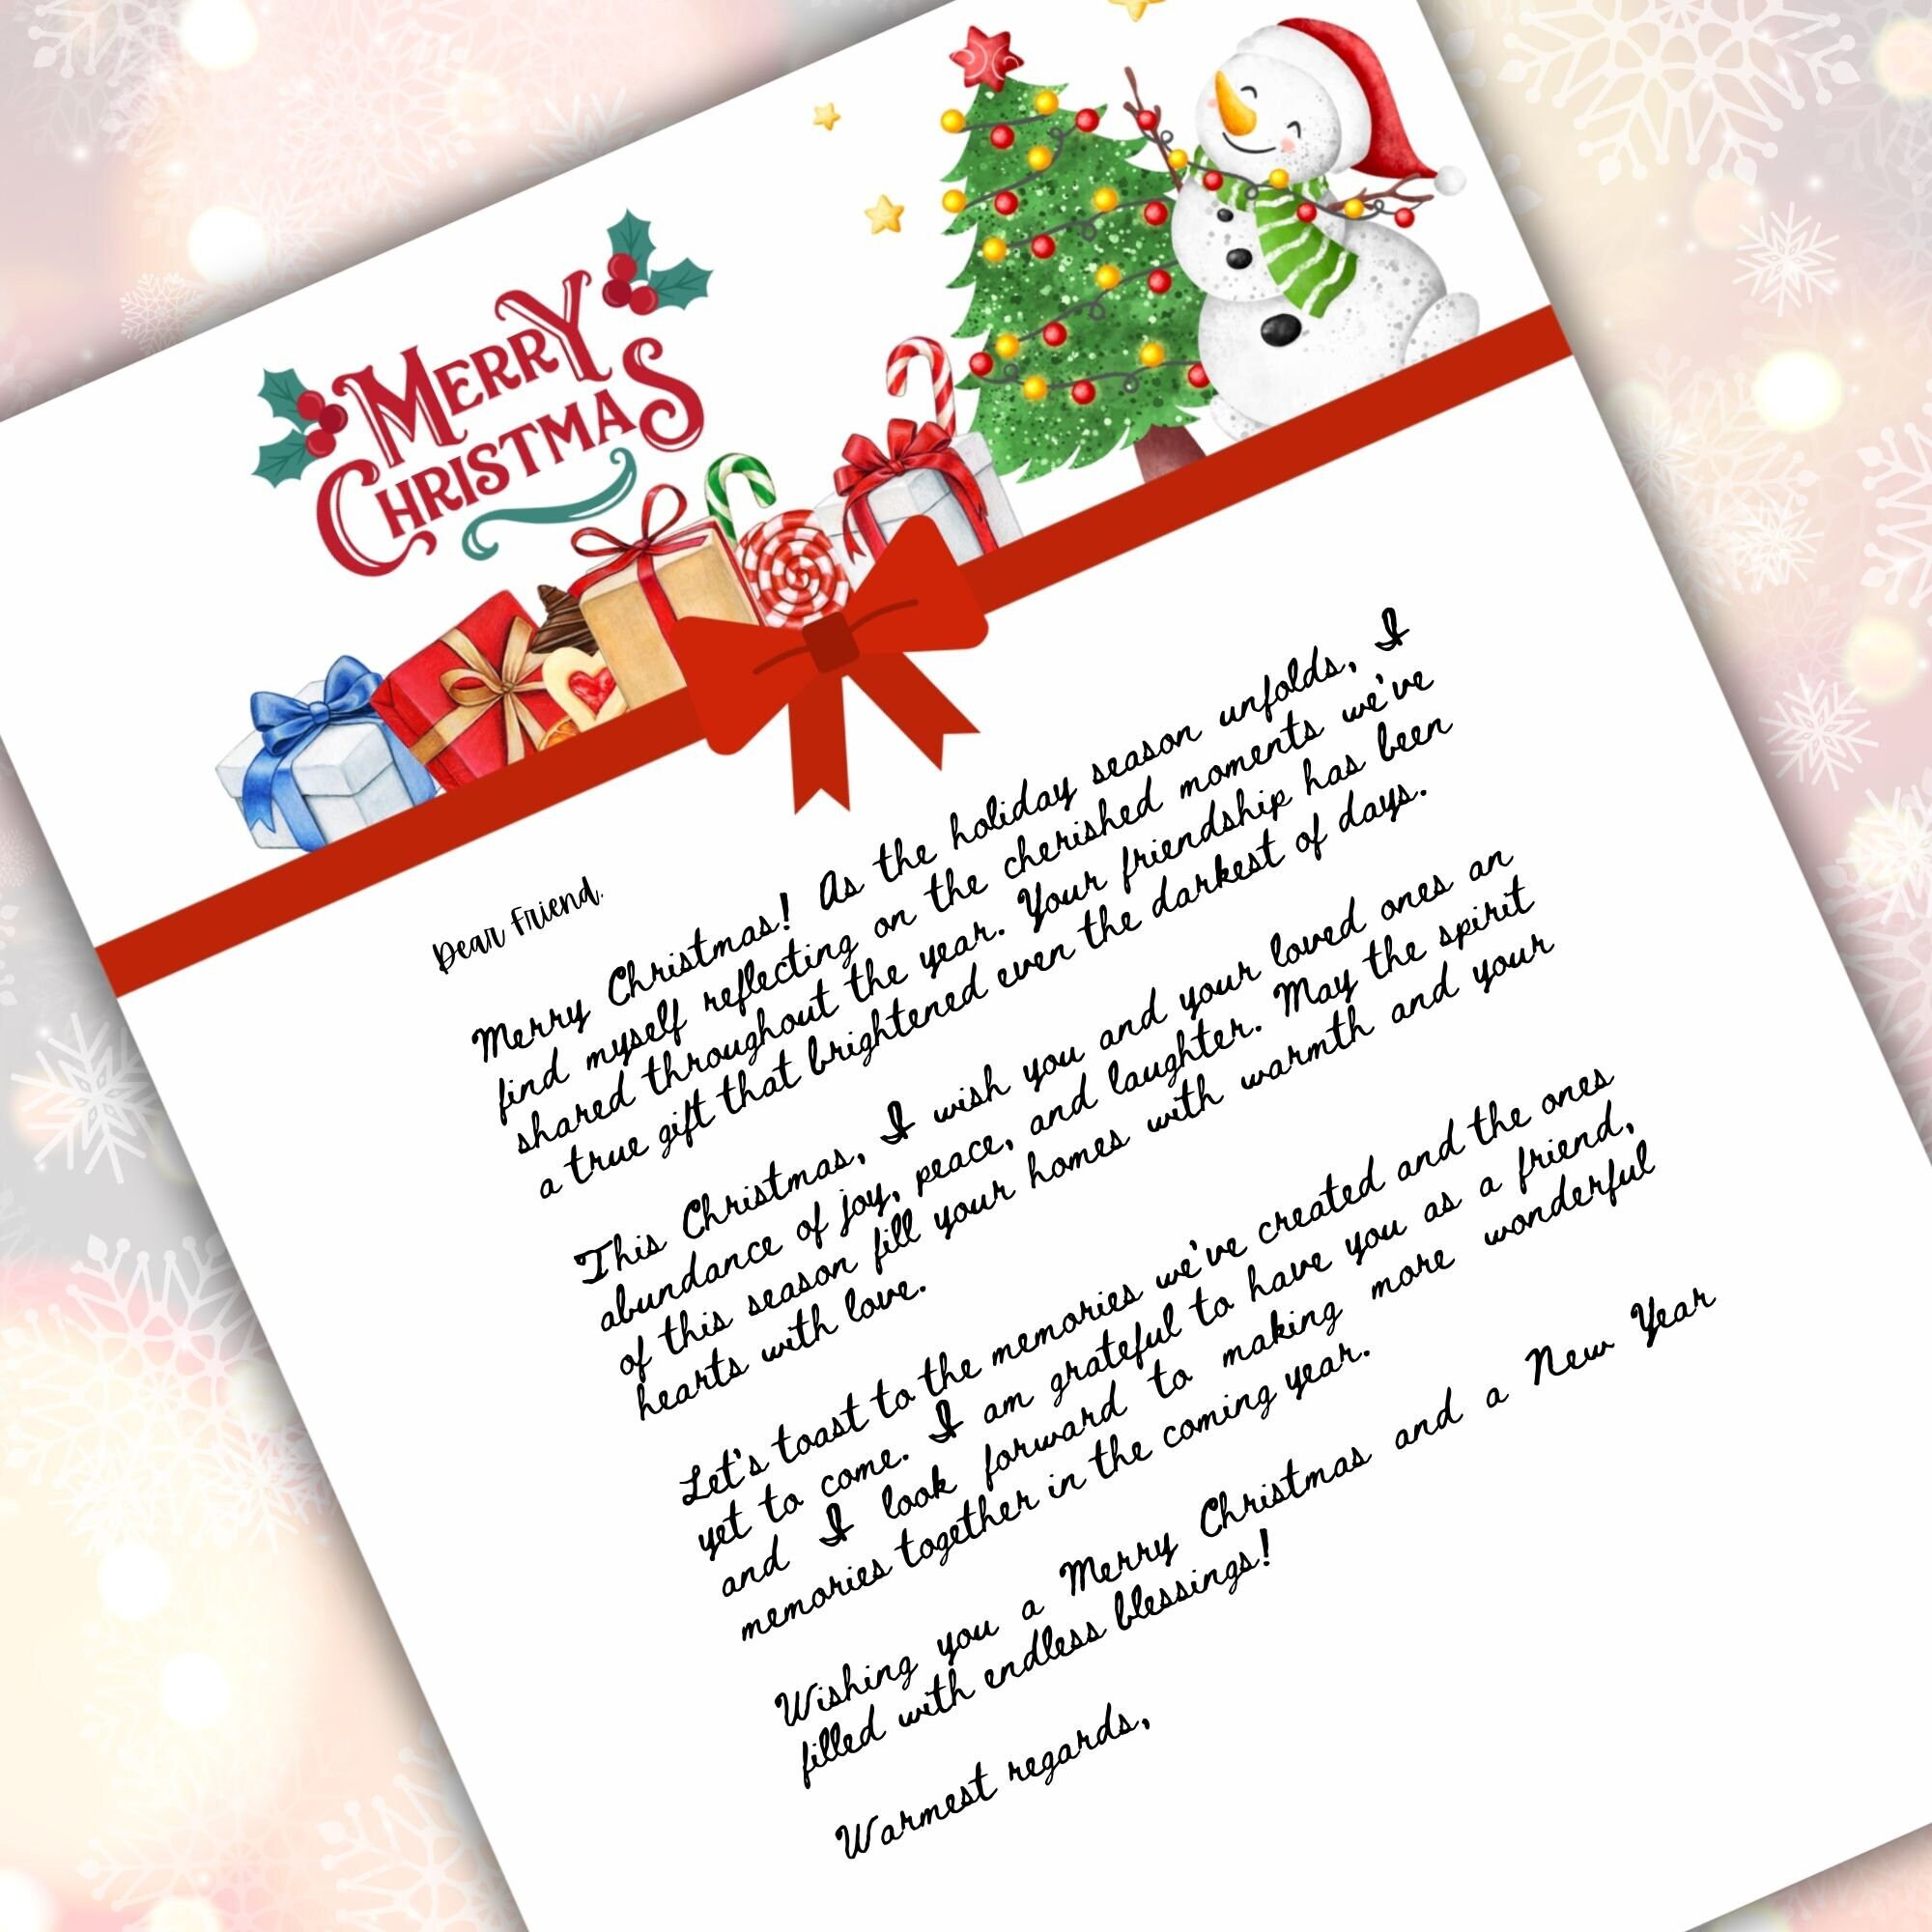 MERRY
CHRISTMAS
Dear Friend,
Merry Christmas! As the holiday season unfolds, I
find myself reflecting on the cherished moments we've
shared throughout the year. Your friendship has been
a true gift that brightened even the darkest of days.
This Christmas, I wish you and your loved ones an
abundance of joy, peace, and laughter. May the spirit
of this season fill your homes with warmth and your
hearts with love.
Let's toast to the memories we've created and the ones
yet to come. I am grateful to have you as a friend,
and I look forward to making more wonderful
memories together in the coming year.
Wishing you a Merry Christmas and a New Year
filled with endless blessings!
Warmest regards,